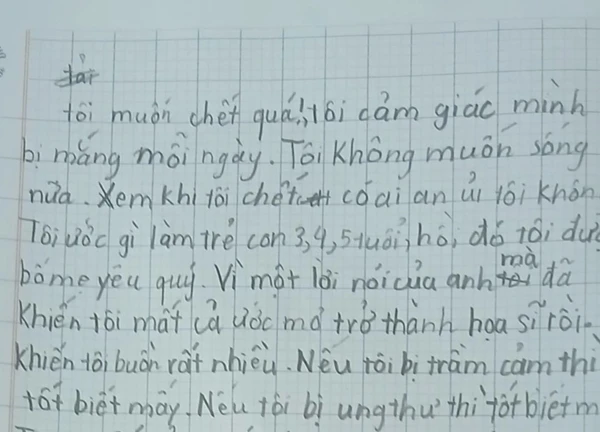 tải
tôi muốn chết quá!, tôi cảm giác mình
bị mắng mỗi ngày. Tôi không muốn sống
nữa. Xem khi tôi chết có ai an ủi tôi khôn
Tôi ước gì làm trẻ con 3,4,5 tuổi, hồi đó tôi đượ
bố mẹ yêu quý. Vì một lời nói của anh mà đã
khiến tôi mất cả ước mơ trở thành họa sĩ rồi.
khiến tôi buồn rất nhiều. Nếu tôi bị trầm cảm thì
tốt biết mấy. Nếu tôi bị ung thư thì tốt biết m